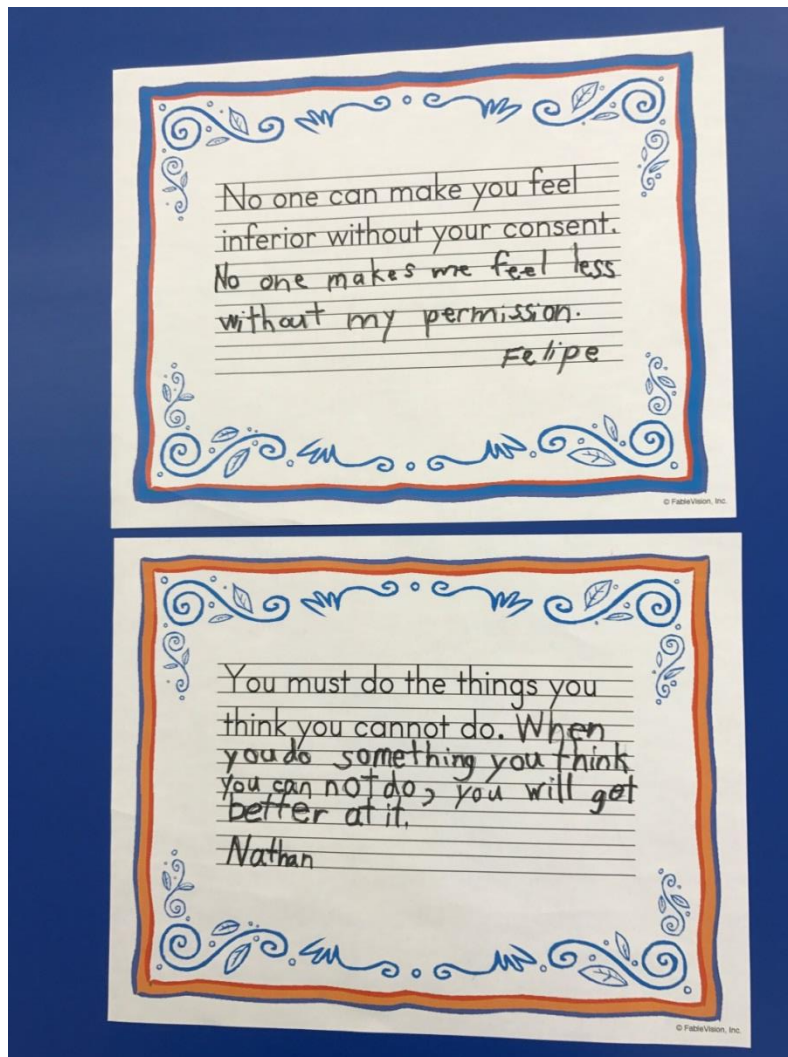 No one can make you feel
inferior without your consent.
No one makes me feel less
without my permission.
Felipe
© FableVision, Inc.
You must do the things you
think you cannot do. When
you do something you think
you can not do, you will get
better at it.
Nathan
© FableVision, Inc.